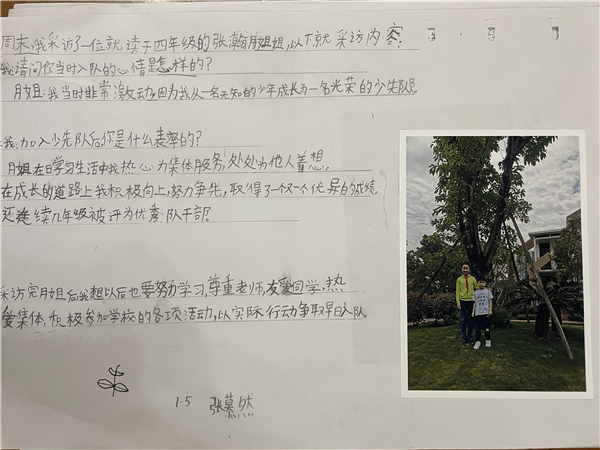 周末,我采访了一位就读于四年级的张瀚月姐姐,以下就采访内容:
我:请问你当时入队的心情是怎样的?
月姐:我当时非常激动,因为我从一名无知的少年成长为一名光荣的少先队员
我:加入少先队后,你是什么表率的?
月姐:在日学习生活中我热心为集体服务,处处为他人着想。
在成长的道路上我积极向上,努力争先,取得了一个又一个优异的成绩,
还连续几年级被评为优秀队干部
采访完月姐后我想以后也要努力学习,尊重老师,友爱同学,热
爱集体,积极参加学校的各项活动,以实际行动争取早日入队。
1.5 张慕然